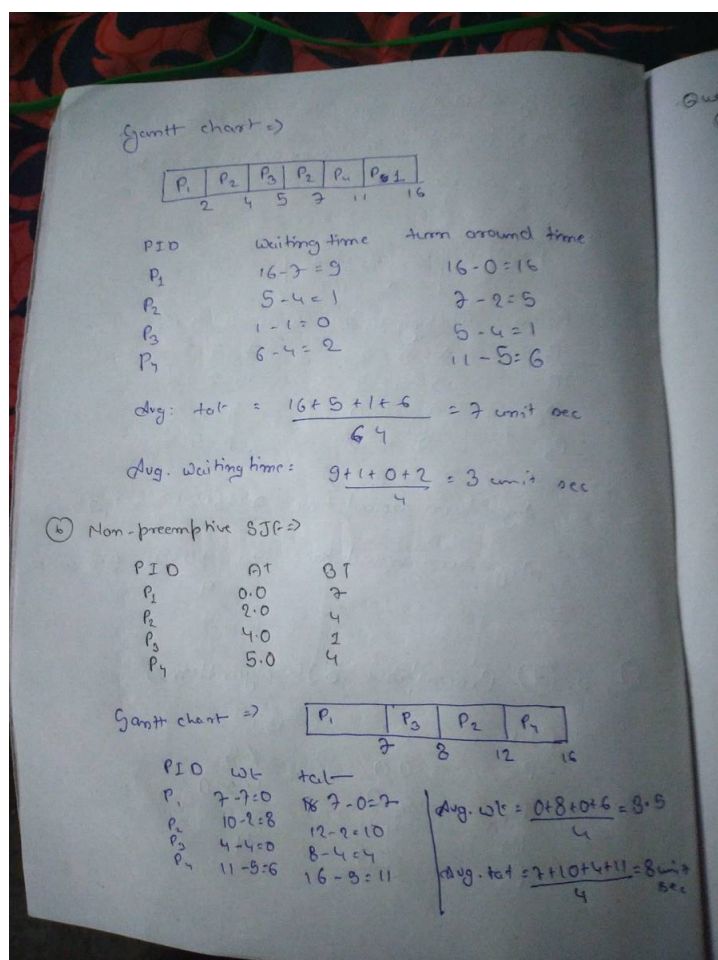 Gantt chart =>
P1 P2 P3 P2 P4 P1
2 4 5 7 11 16
PID waiting time turn around time
P1 16-7=9 16-0=16
P2 5-4=1 7-2=5
P3 1-1=0 5-4=1
P4 6-4=2 11-5=6
Avg: tat = 16+5+1+6 / 4 = 7 unit sec
Avg. waiting time = 9+1+0+2 / 4 = 3 unit sec
(b) Non-preemptive SJF =>
PID AT BT
P1 0.0 7
P2 2.0 4
P3 4.0 1
P4 5.0 4
Gantt chart => P1 P3 P2 P4
7 8 12 16
PID wt tat
P1 7-7=0 7-0=7
P2 10-2=8 12-2=10
P3 4-4=0 8-4=4
P4 11-5=6 16-5=11
Avg. wt = 0+8+0+6 / 4 = 3.5
Avg. tat = 7+10+4+11 / 4 = 8 unit sec